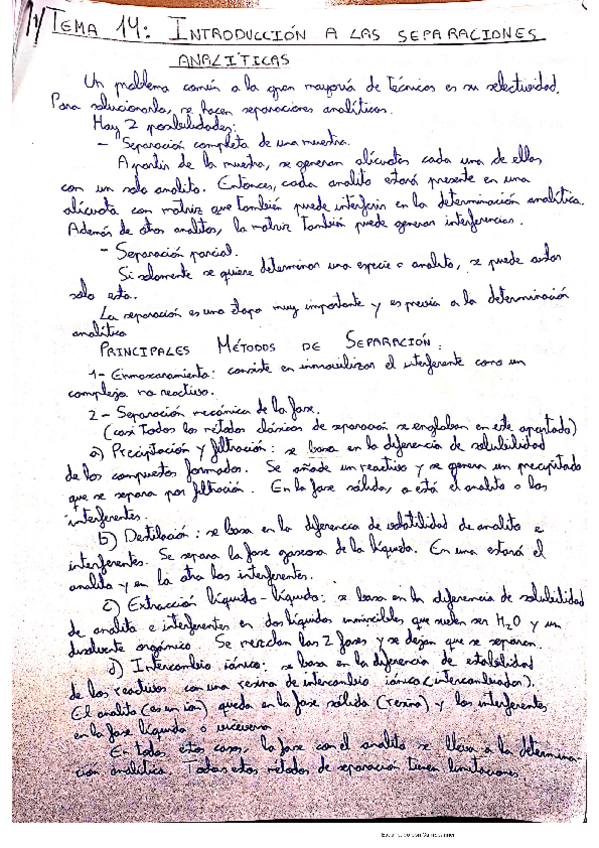 TEMA 14: INTRODUCCIÓN A LAS SEPARACIONES
ANALITICAS
Un problema común a la gran mayoría de técnicas es su selectividad.
Para solucionarlo, se hacen separaciones analíticas.
Hay 2 posibilidades:
- Separación completa de una muestra.
A partir de la muestra, se generan alícuotas cada una de ellas
con un solo analito. Entonces, cada analito estará presente en una
alícuota con matriz que también puede interferir en la determinación analítica.
Además de otros analitos, la matriz también puede generar interferencias.
- Separación parcial.
Si solamente se quiere determinar una especie o analito, se puede aislar
solo esta.
La separación es una etapa muy importante y es previa a la determinación
analítica
PRINCIPALES MÉTODOS DE SEPARACIÓN:
1- Enmascaramiento: consiste en inmovilizar el interferente como un
complejo no reactivo.
2- Separación mecánica de la fase.
(casi todos los métodos clásicos de separación se engloban en este apartado)
a) Precipitación y filtración: se basa en la diferencia de solubilidad
de los compuestos formados. Se añade un reactivo y se genera un precipitado
que se separa por filtración. En la fase sólida, o está el analito o los
interferentes.
b) Destilación: se basa en la diferencia de volatilidad de analito e
interferentes. Se separa la fase gaseosa de la líquida. En una estará el
analito y en la otra los interferentes.
c) Extracción líquido-líquido: se basa en la diferencia de solubilidad
de analito e interferentes en dos líquidos inmiscibles que suelen ser H₂O y un
disolvente orgánico. Se mezclan las 2 fases y se dejan que se separen.
d) Intercambio iónico: se basa en la diferencia de estabilidad
de los reactivos con una resina de intercambio iónico (intercambiador).
El analito (es un ion) queda en la fase sólida (resina) y los interferentes
en la fase líquida o viceversa
En todos estos casos, la fase con el analito se lleva a la determina-
ción analítica. Todos estos métodos de separación tienen limitaciones.